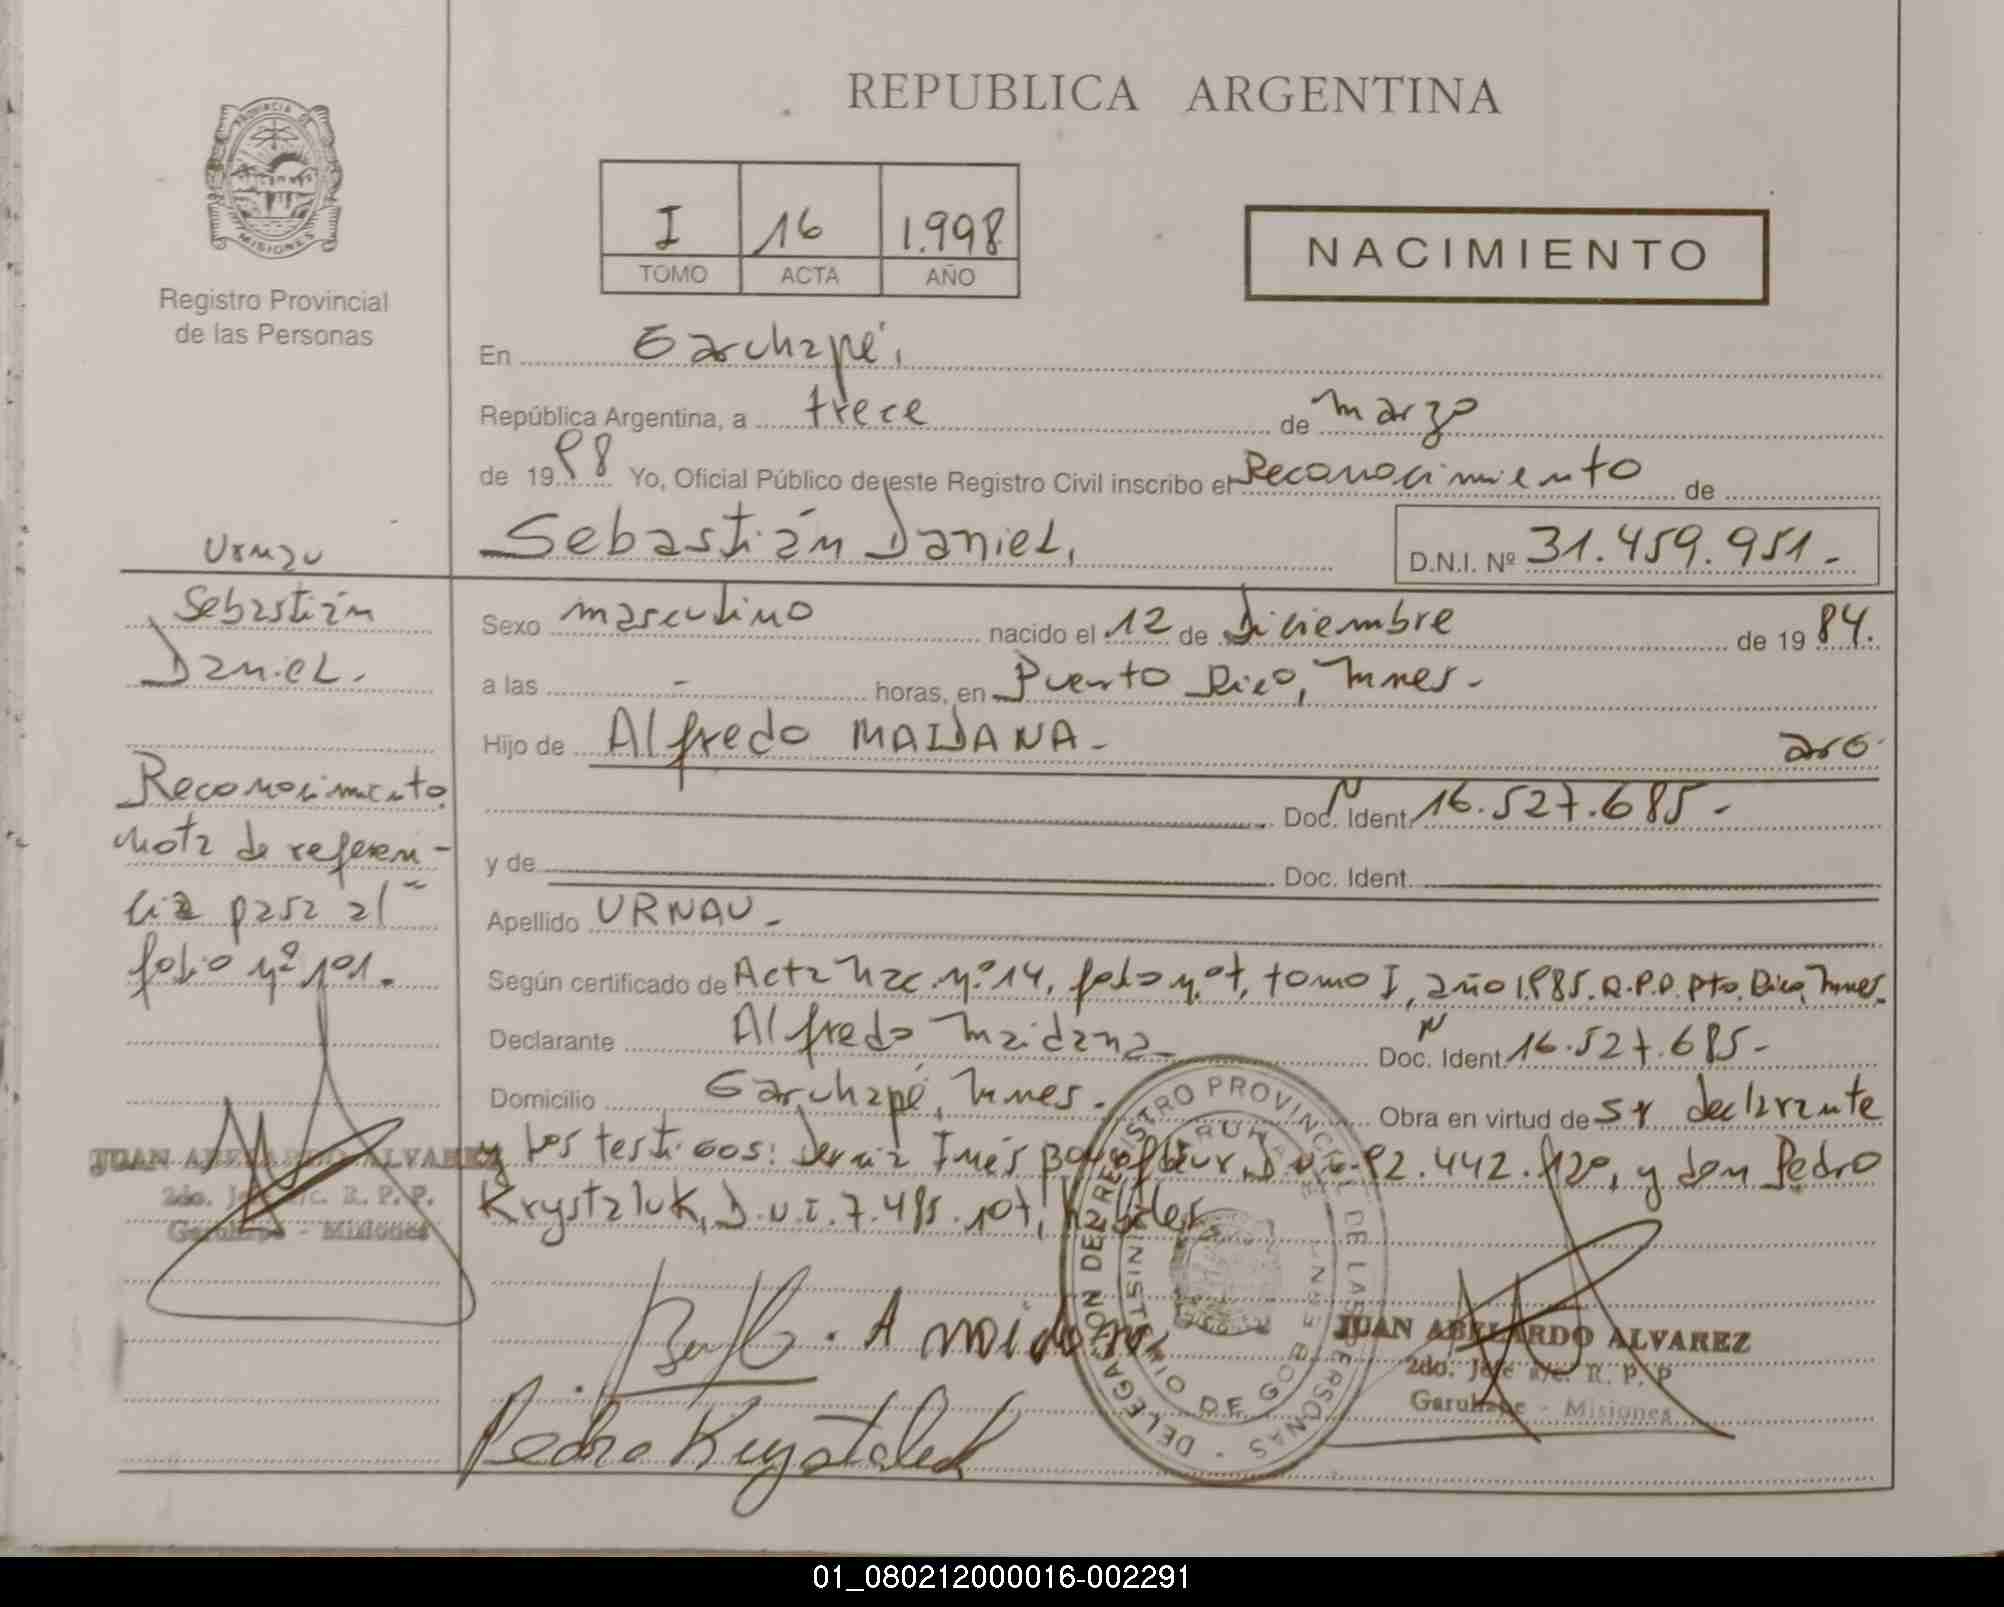 REPUBLICA ARGENTINA
PROVINCIA DE
MISIONES
Registro Provincial
de las Personas
I 16 1.998
TOMO ACTA AÑO
NACIMIENTO
En Garuhapé,
República Argentina, a trece de marzo
de 1998 Yo, Oficial Público de este Registro Civil inscribo el Reconocimiento de
Sebastián Daniel, D.N.I. Nº 31.459.951.-
Sexo masculino nacido el 12 de Diciembre de 1984.
a las - horas, en Puerto Rico, Mnes.-
Hijo de Alfredo MAIDANA- arg.
Doc. Ident. 16.527.685-
y de Doc. Ident.
Apellido URNAU-
Según certificado de Acta Nac. nº 14, folio nº 7, tomo I, año 1.985. R.P.P. Pto. Rico, Mnes.
Declarante Alfredo Maidana- Doc. Ident. 16.527.685-
Domicilio Garuhapé, Mnes.- Obra en virtud de ser declarante
y los testigos: Inés y don Pedro
Krystaluk, D.N.I. 7.485.107, hábiles
A Maidana
Pedro Krystaluk
JUAN ABELARDO ALVAREZ
2do. Jefe a/c. R. P. P.
Garuhape - Misiones
DELEGACION DEL REGISTRO PROVINCIAL DE LAS PERSONAS
MINISTERIO DE GOBIERNO
Urnau
Sebastián
Daniel.
Reconocimiento
nota de referen-
cia pasa al
folio nº 101.
JUAN ABELARDO ALVAREZ
2do. Jefe a/c. R. P. P.
Garuhape - Misiones
01_080212000016-002291